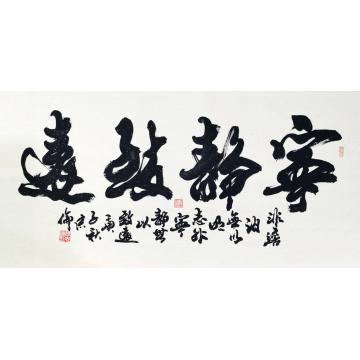 寧靜致遠
非澹泊無以明志非寧靜無以致遠庚子秋